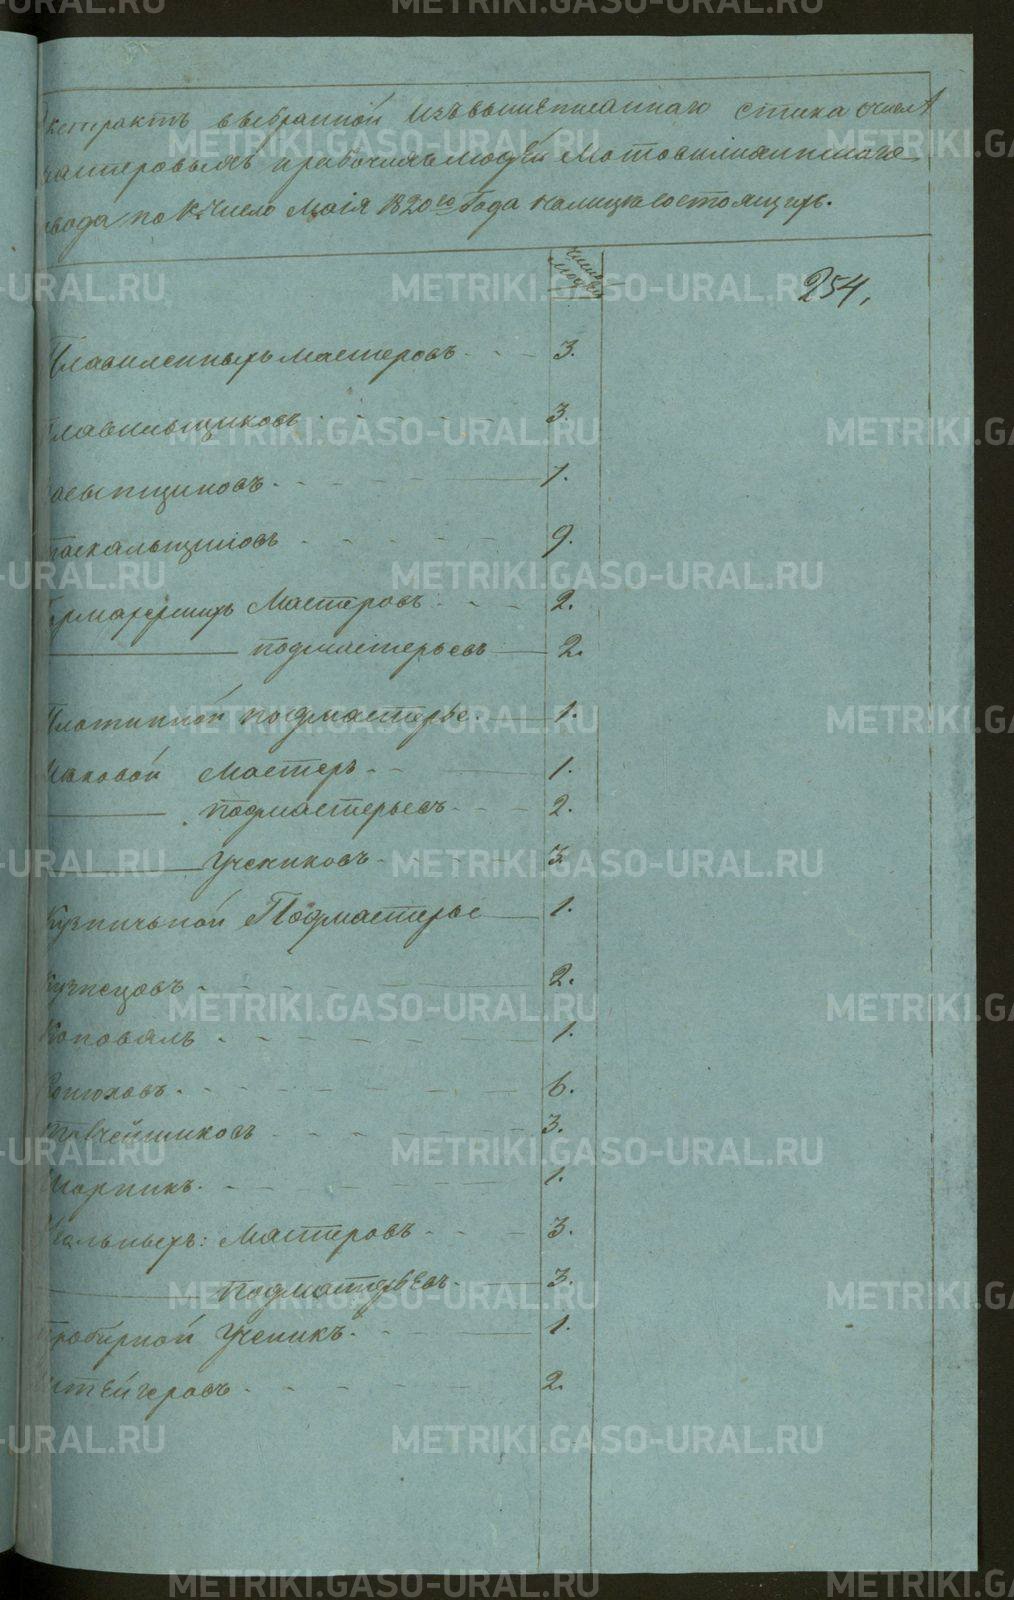 METRIKI.GASO-URAL.RU
Экстрактъ выбранной Изъвышеписаннаго Списка очисле
мастеровымъ ирабочимъ людей Мотовилихинскаго
завода по 1е Число Маія 1820го Года налицо состоящихъ.
Число людей
254.
Плавиленныхъ мастеровъ 3.
Плавильщиковъ 3.
Засыпщиковъ 7.
Таскальщиковъ 9.
Гармахерскихъ Мастеровъ 2.
подмастерьевъ 2.
Плотинной подмастерье 1.
Меховой Мастеръ 1.
подмастерьевъ 2.
Учениковъ 3
Кузничьной Подмастерье 1.
Кузнецовъ 2.
Коновалъ 1.
Конюховъ 6.
Толчейщиковъ 3.
Шорникъ 1.
Мастеровъ 3.
подмастерьевъ 3.
Пробирной Ученикъ 1.
Штейгеровъ 2.